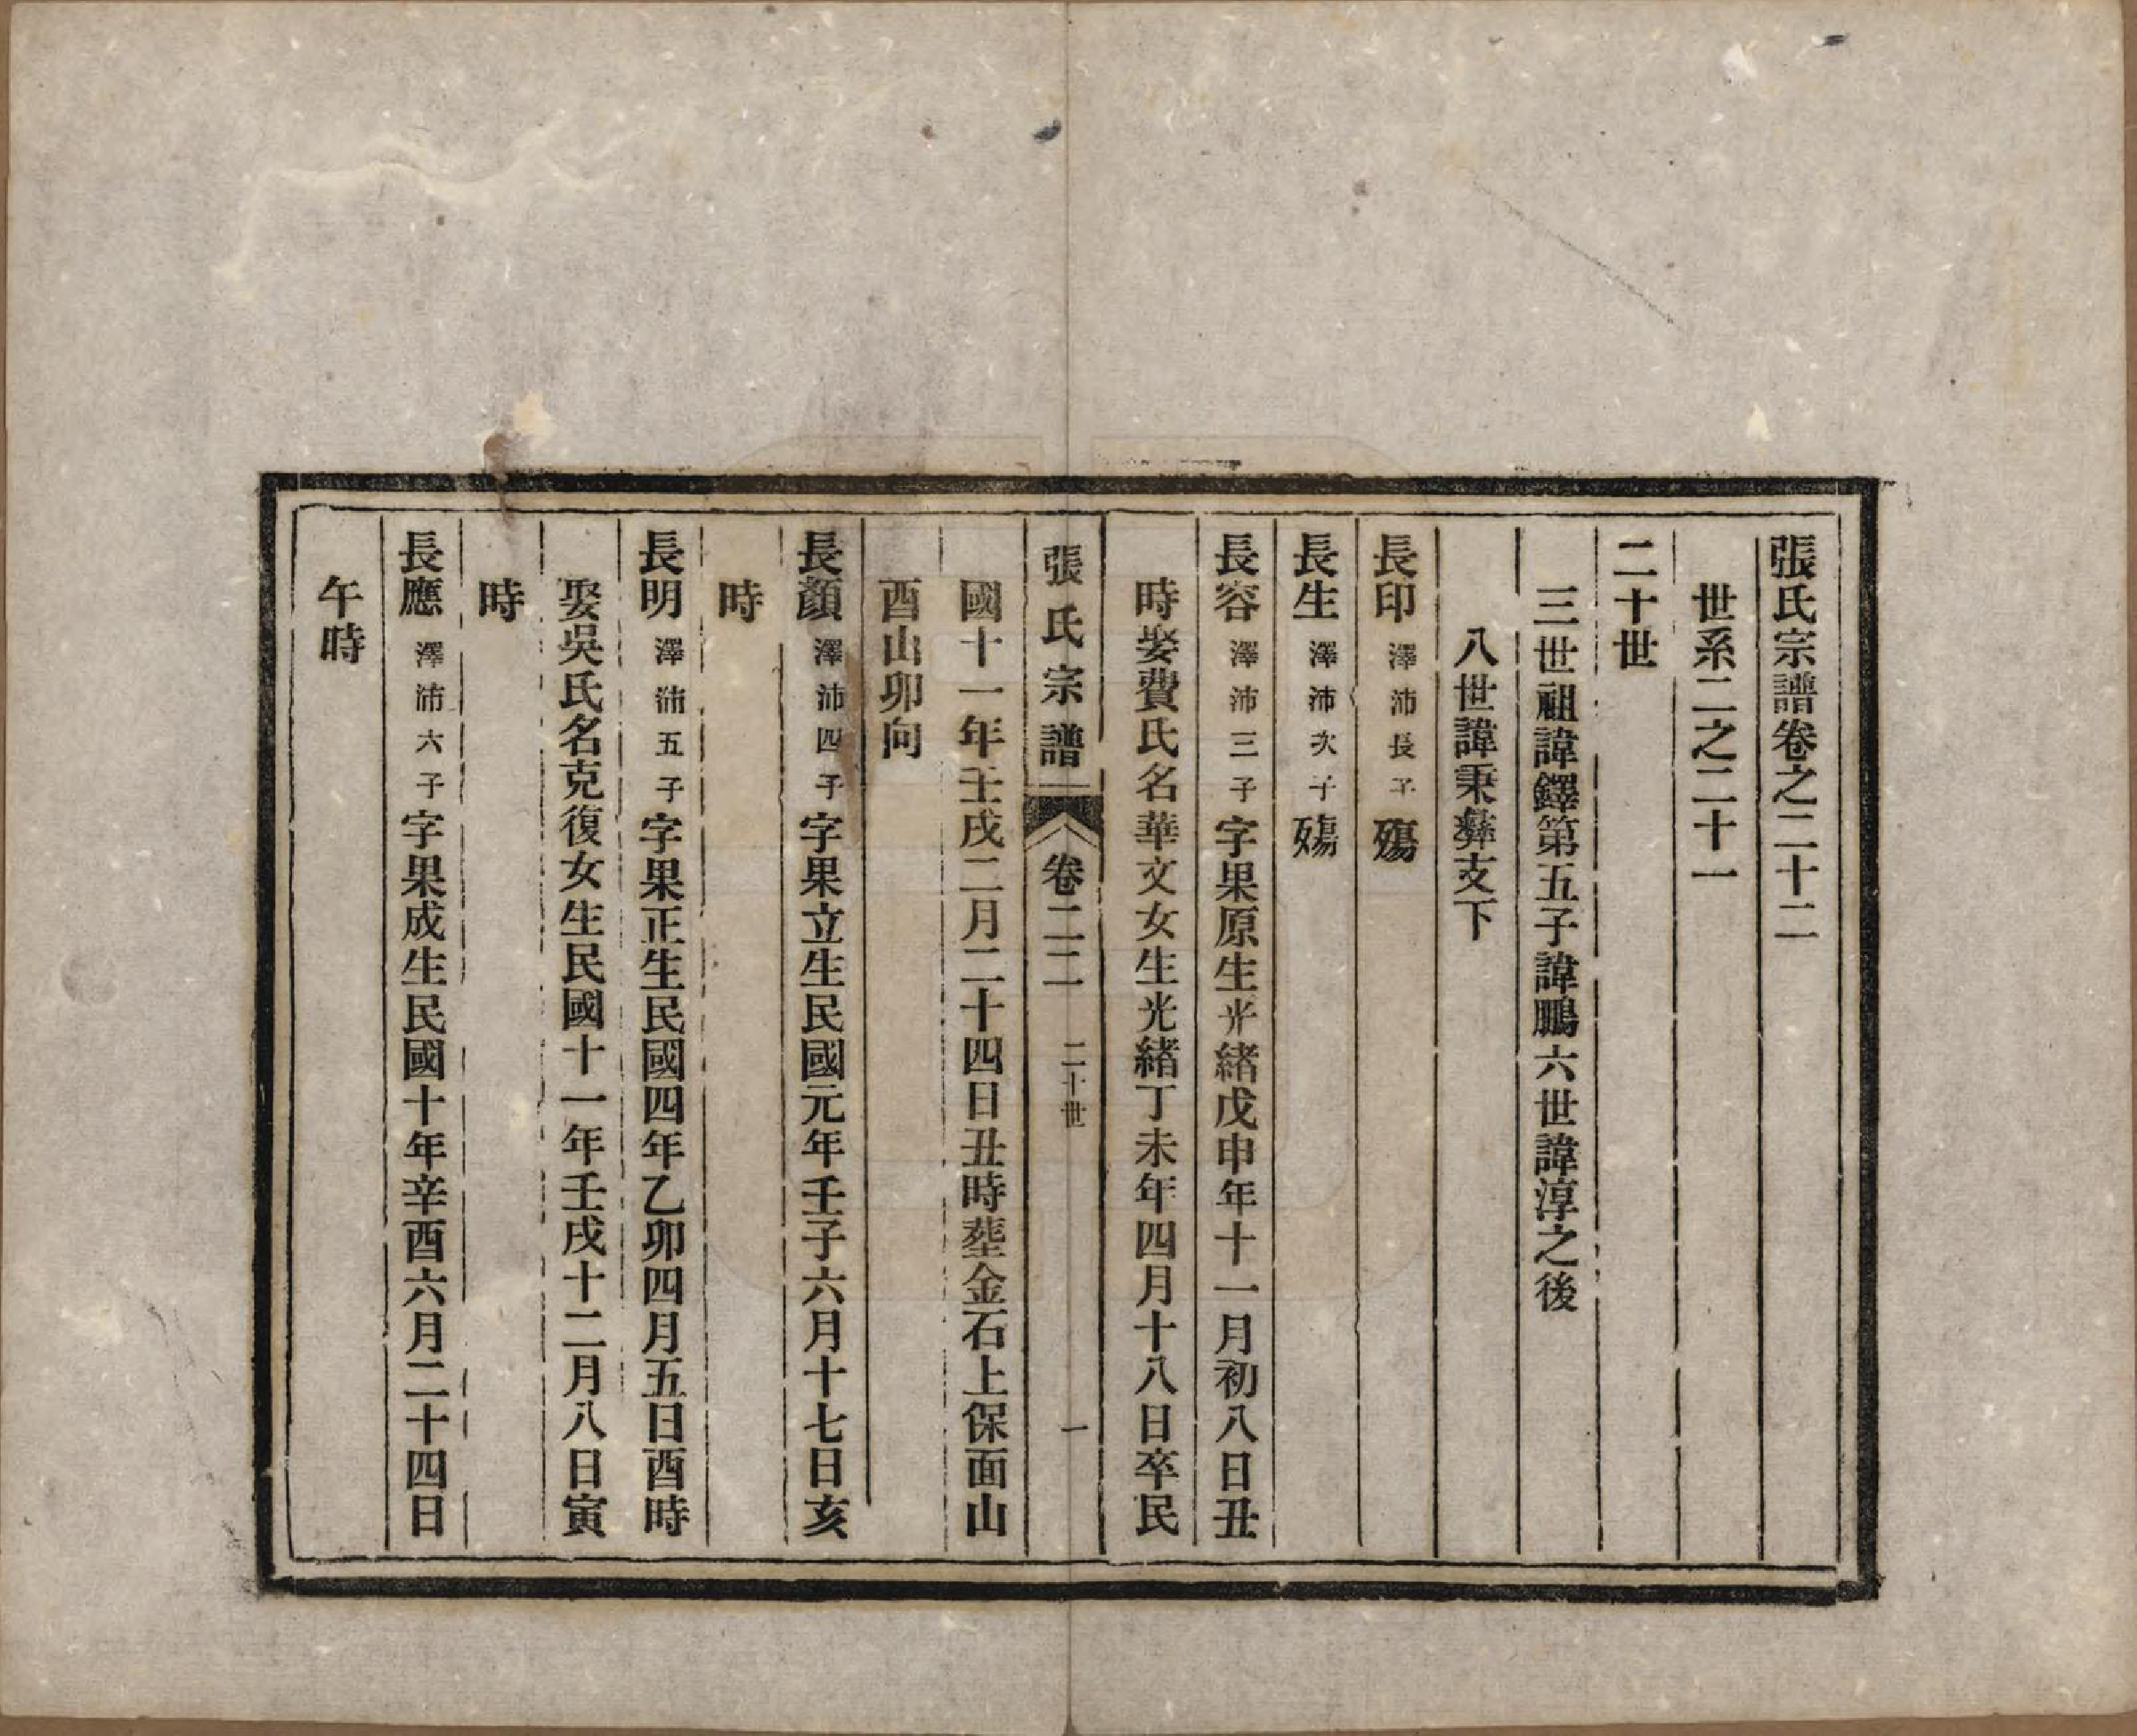 張氏宗譜卷之二十二
世系二之二十一
二十世
三世祖諱鐸第五子諱鵬六世諱淳之後
八世諱秉彝支下
長印澤沛長子殤
長生澤沛次子殤
長容澤沛三子字果原生光緒戊申年十一月初八日丑
時娶費氏名華文女生光緒丁未年四月十八日卒民
張氏宗譜 卷二二 二十世 一
國十一年壬戌二月二十四日丑時塟金石上保面山
酉山卯向
長顏澤沛四子字果立生民國元年壬子六月十七日亥
時
長明澤沛五子字果正生民國四年乙卯四月五日酉時
娶吳氏名克復女生民國十一年壬戌十二月八日寅
時
長應澤沛六子字果成生民國十年辛酉六月二十四日
午時